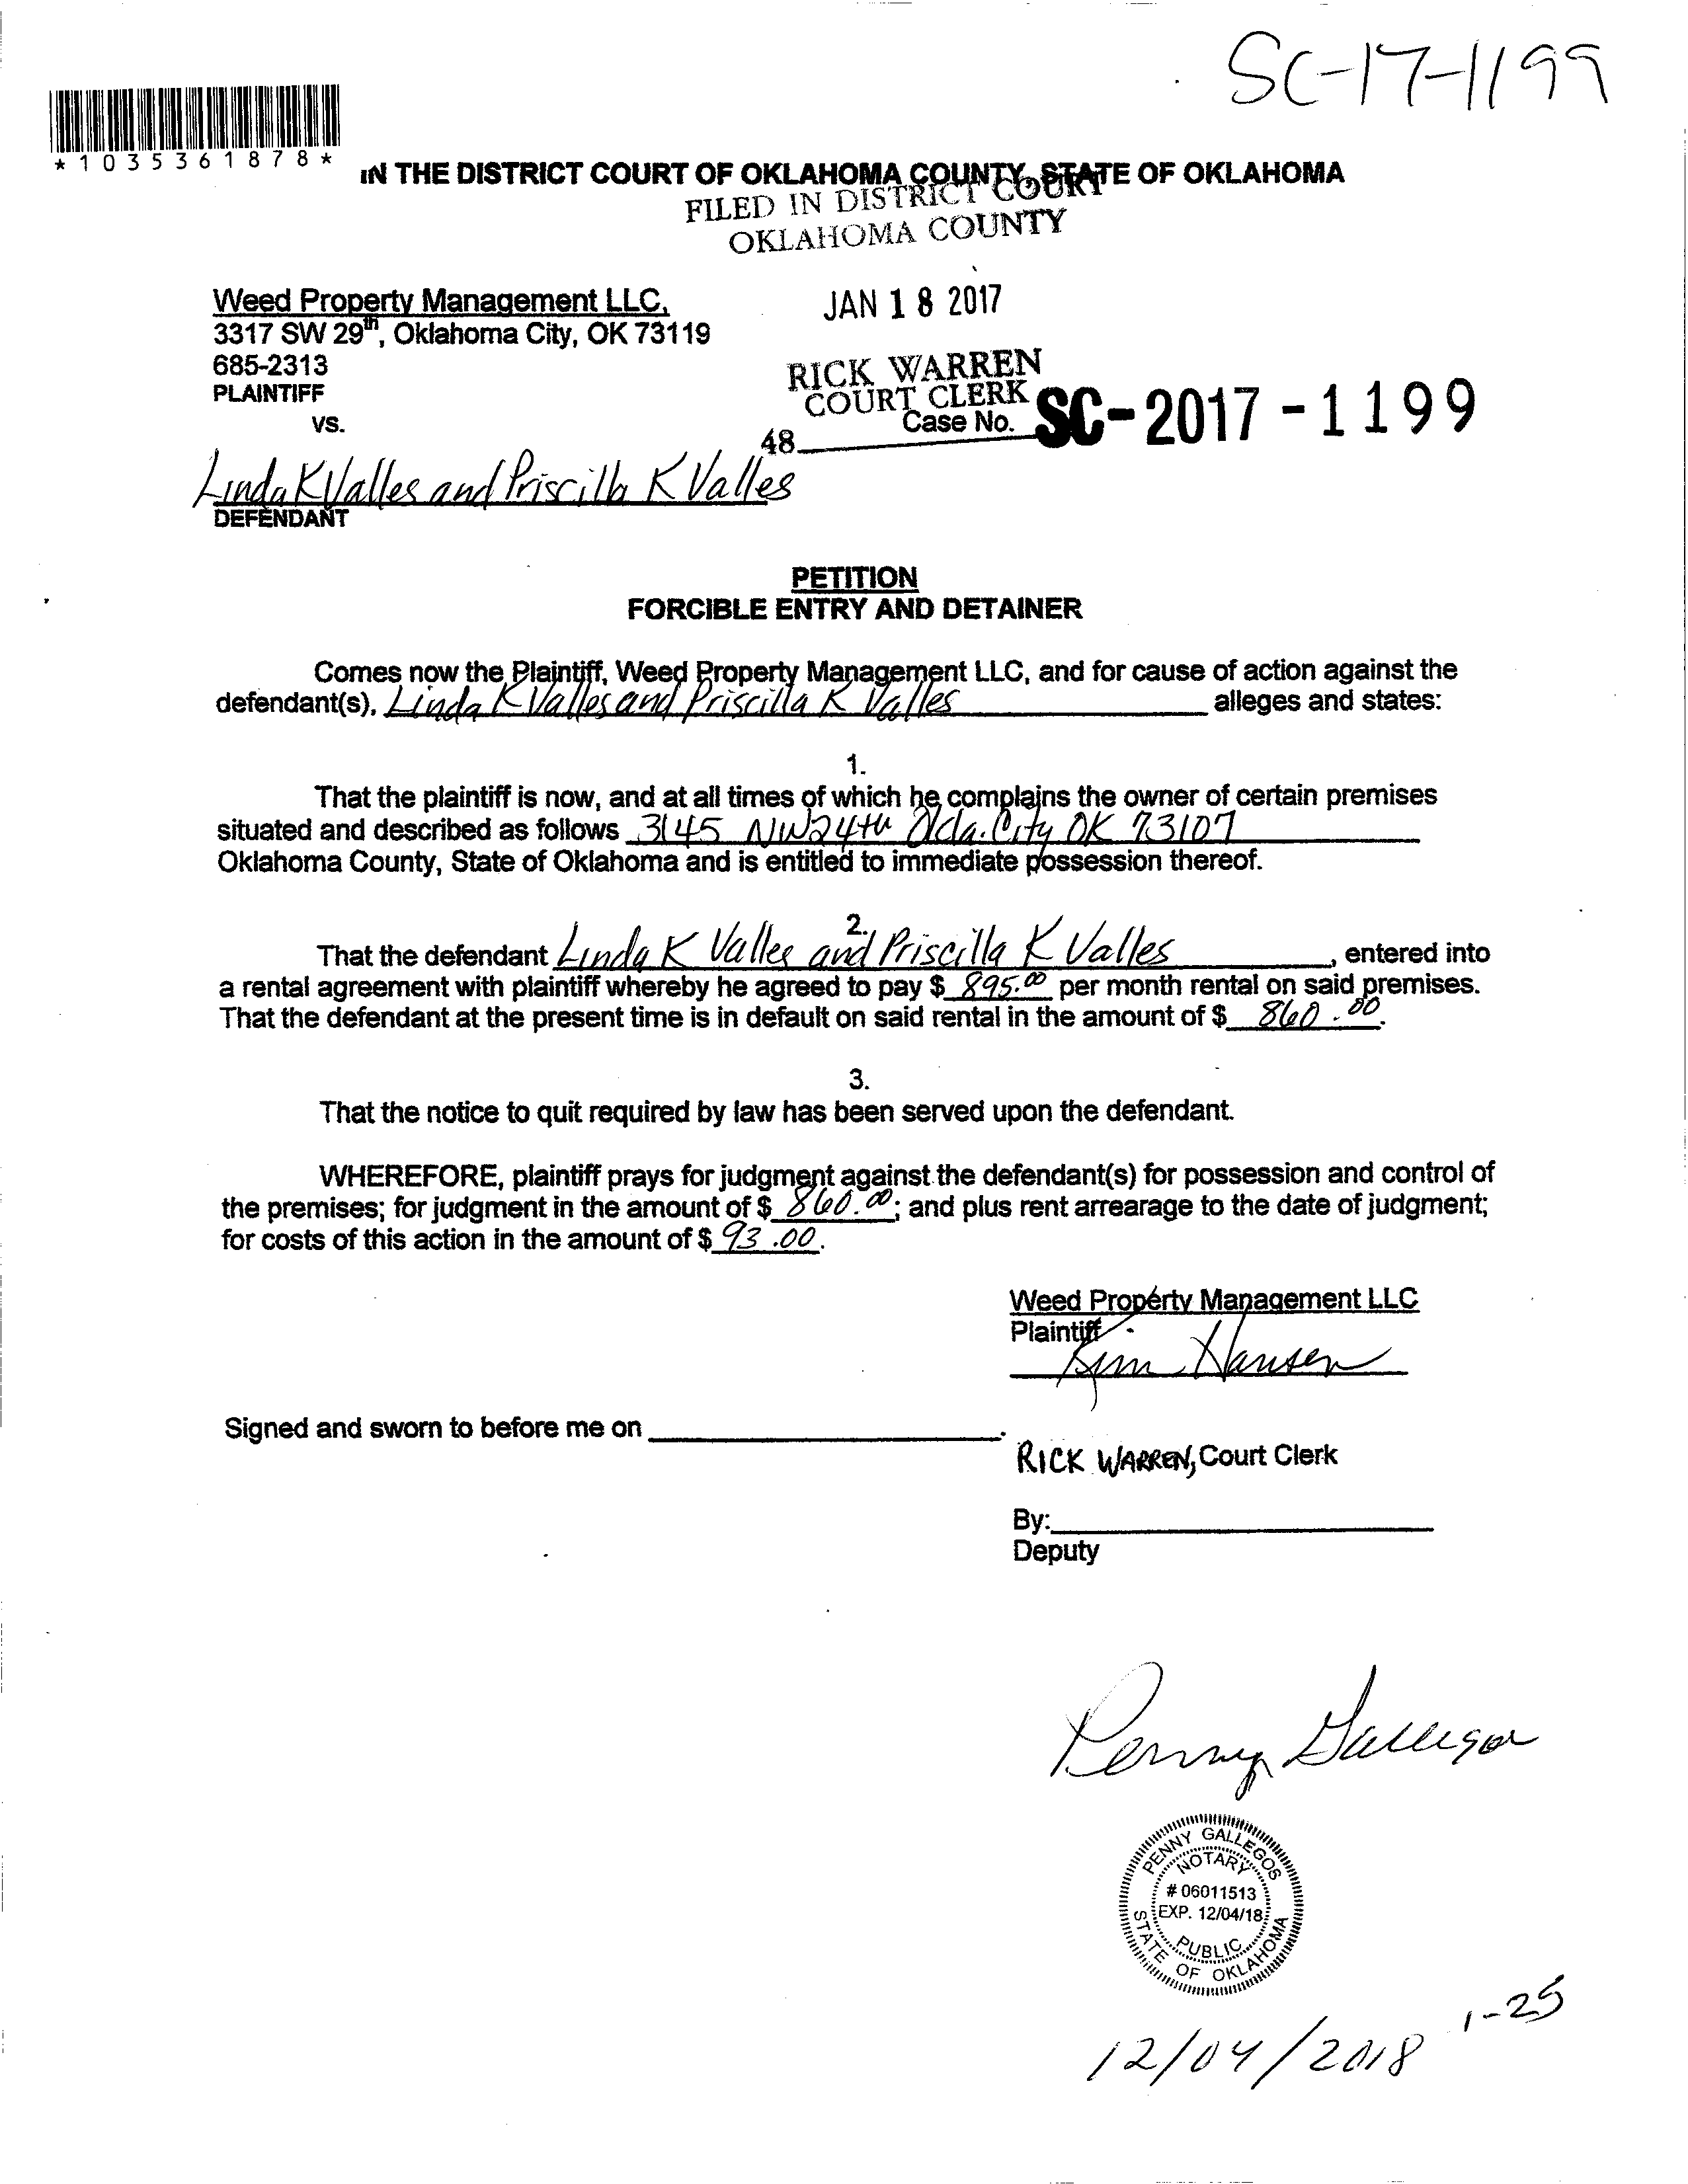 SC-17-1199
*1035361878*
IN THE DISTRICT COURT OF OKLAHOMA COUNTY, STATE OF OKLAHOMA
FILED IN DISTRICT COURT
OKLAHOMA COUNTY
JAN 18 2017
RICK WARREN
COURT CLERK
Weed Property Management LLC,
3317 SW 29th, Oklahoma City, OK 73119
685-2313
PLAINTIFF
vs.
Case No. SC-2017-1199
48
Linda K Valles and Priscilla K Valles
DEFENDANT
PETITION
FORCIBLE ENTRY AND DETAINER
Comes now the Plaintiff, Weed Property Management LLC, and for cause of action against the
defendant(s), Linda K Valles and Priscilla K Valles alleges and states:
1.
That the plaintiff is now, and at all times of which he complains the owner of certain premises
situated and described as follows 3145 NW 24th Okla. City OK 73107
Oklahoma County, State of Oklahoma and is entitled to immediate possession thereof.
2.
That the defendant Linda K Valles and Priscilla K Valles, entered into
a rental agreement with plaintiff whereby he agreed to pay $ 895.00 per month rental on said premises.
That the defendant at the present time is in default on said rental in the amount of $ 860.00.
3.
That the notice to quit required by law has been served upon the defendant.
WHEREFORE, plaintiff prays for judgment against the defendant(s) for possession and control of
the premises; for judgment in the amount of $ 860.00; and plus rent arrearage to the date of judgment;
for costs of this action in the amount of $ 93.00.
Weed Property Management LLC
Plaintiff
Kim Hansen
Signed and sworn to before me on
RICK WARREN, Court Clerk
By:
Deputy
Penny Gallegos
PENNY GALLEGOS
NOTARY
# 06011513
EXP. 12/04/18
PUBLIC
STATE OF OKLAHOMA
1-25
12/04/2018